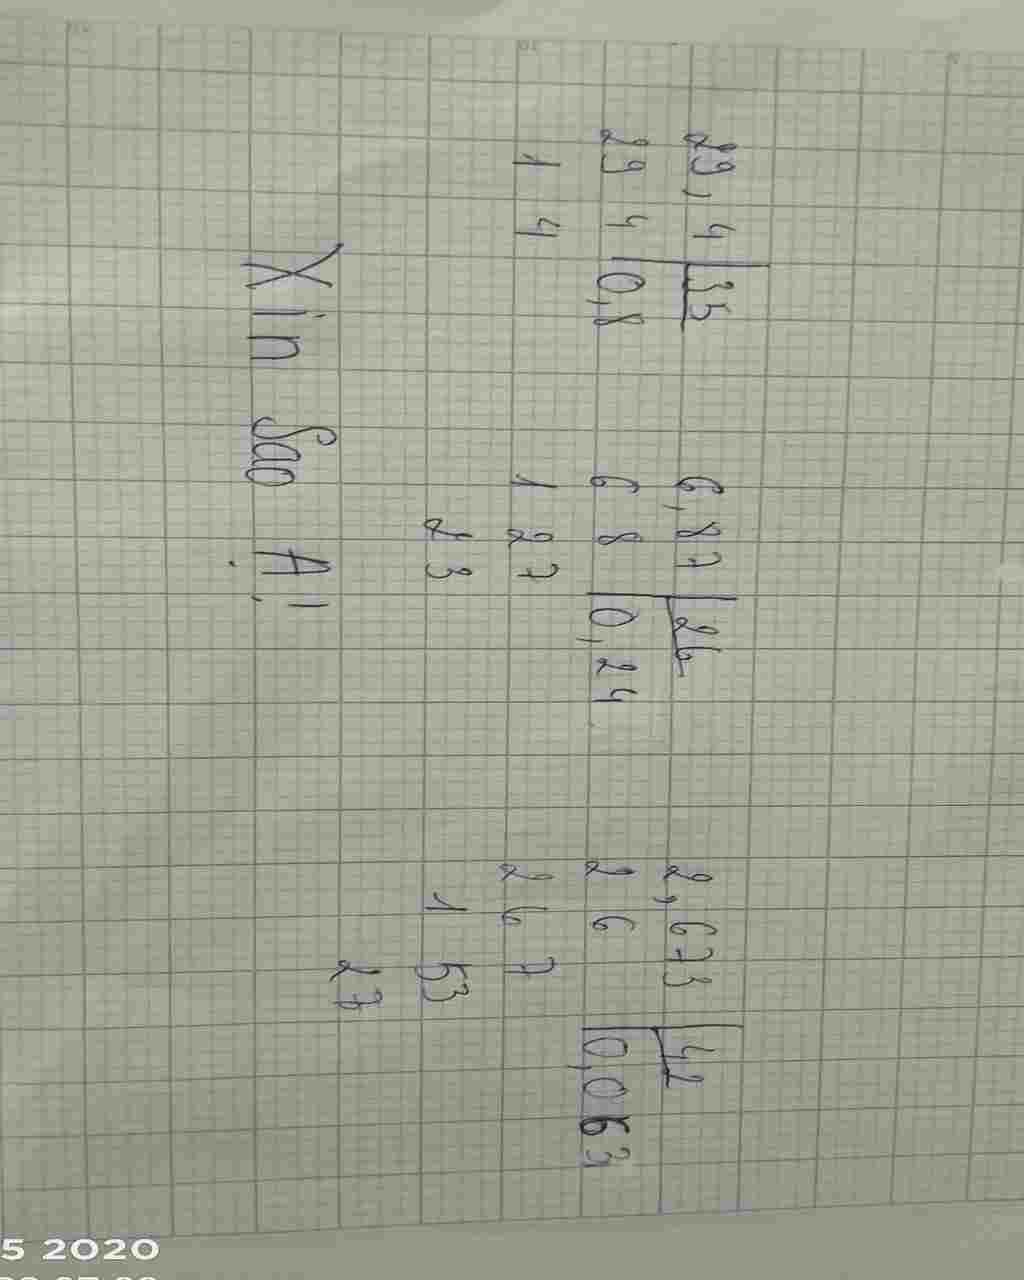 29,4 35
29 4 0,8
1 4
6,87 26
6 8 0,24
1 27
23
2,673 42
2 6 0,063
2 6 7
1 53
27
Xin Sao Ạ!
5 2020